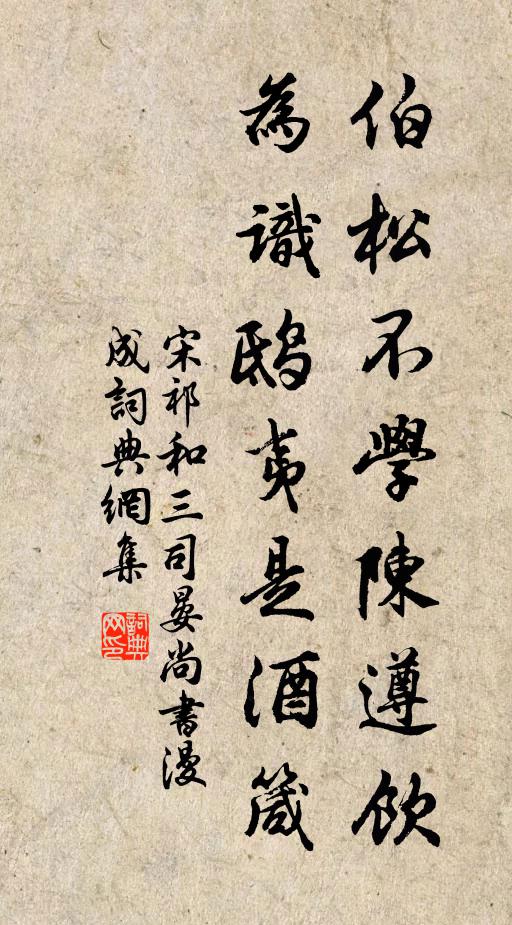 伯松不學陳遵飲
為識鴟夷是酒箴
宋祁和三司晏尚書漫
成詞典網集
詞典网印